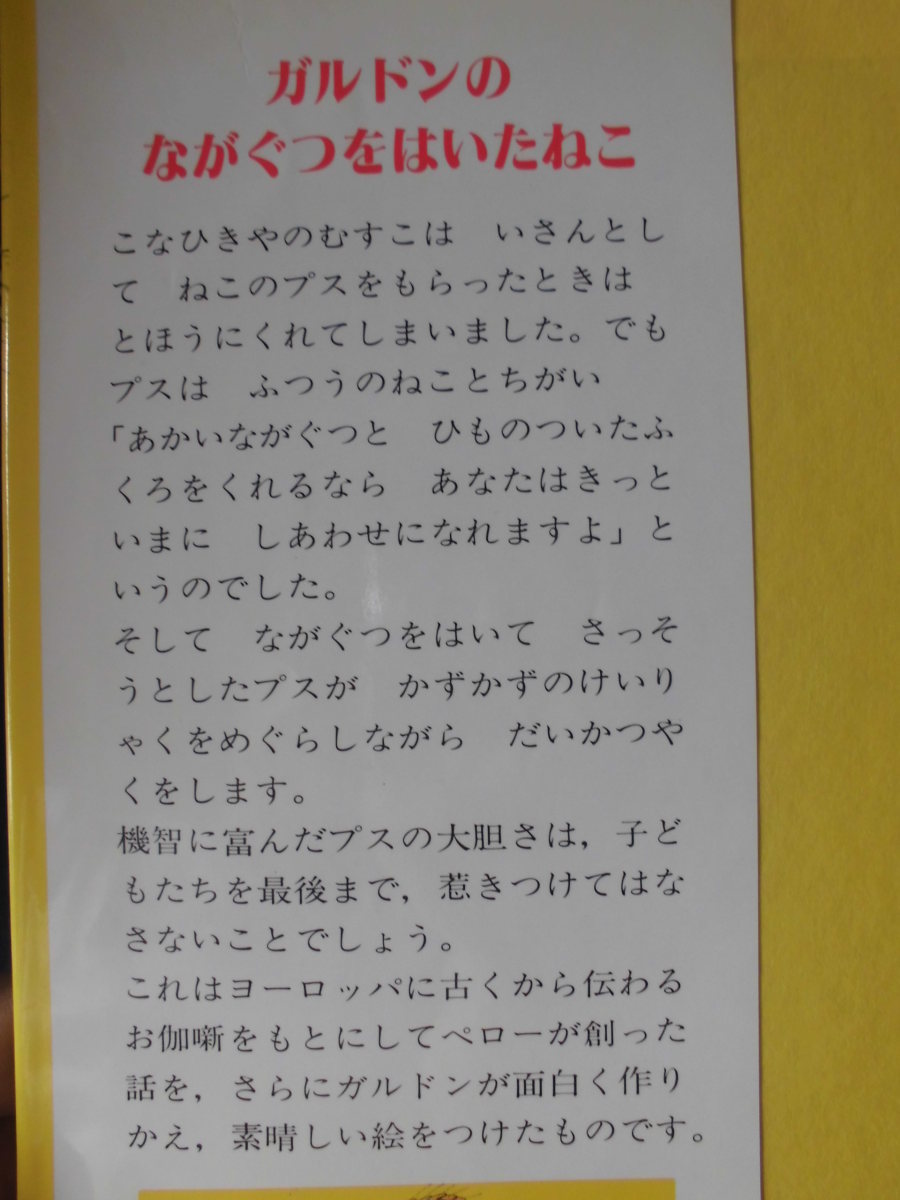 ガルドンの
ながぐつをはいたねこ
こなひきやのむすこは　いさんとし
て　ねこのプスをもらったときは
とほうにくれてしまいました。でも
プスは　ふつうのねことちがい
「あかいながぐつと　ひものついたふ
くろをくれるなら　あなたはきっと
いまに　しあわせになれますよ」と
いうのでした。
そして　ながぐつをはいて　さっそ
うとしたプスが　かずかずのけいり
ゃくをめぐらしながら　だいかつや
くをします。
機智に富んだプスの大胆さは，子ど
もたちを最後まで，惹きつけてはな
さないことでしょう。
これはヨーロッパに古くから伝わる
お伽噺をもとにしてペローが創った
話を，さらにガルドンが面白く作り
かえ，素晴しい絵をつけたものです。